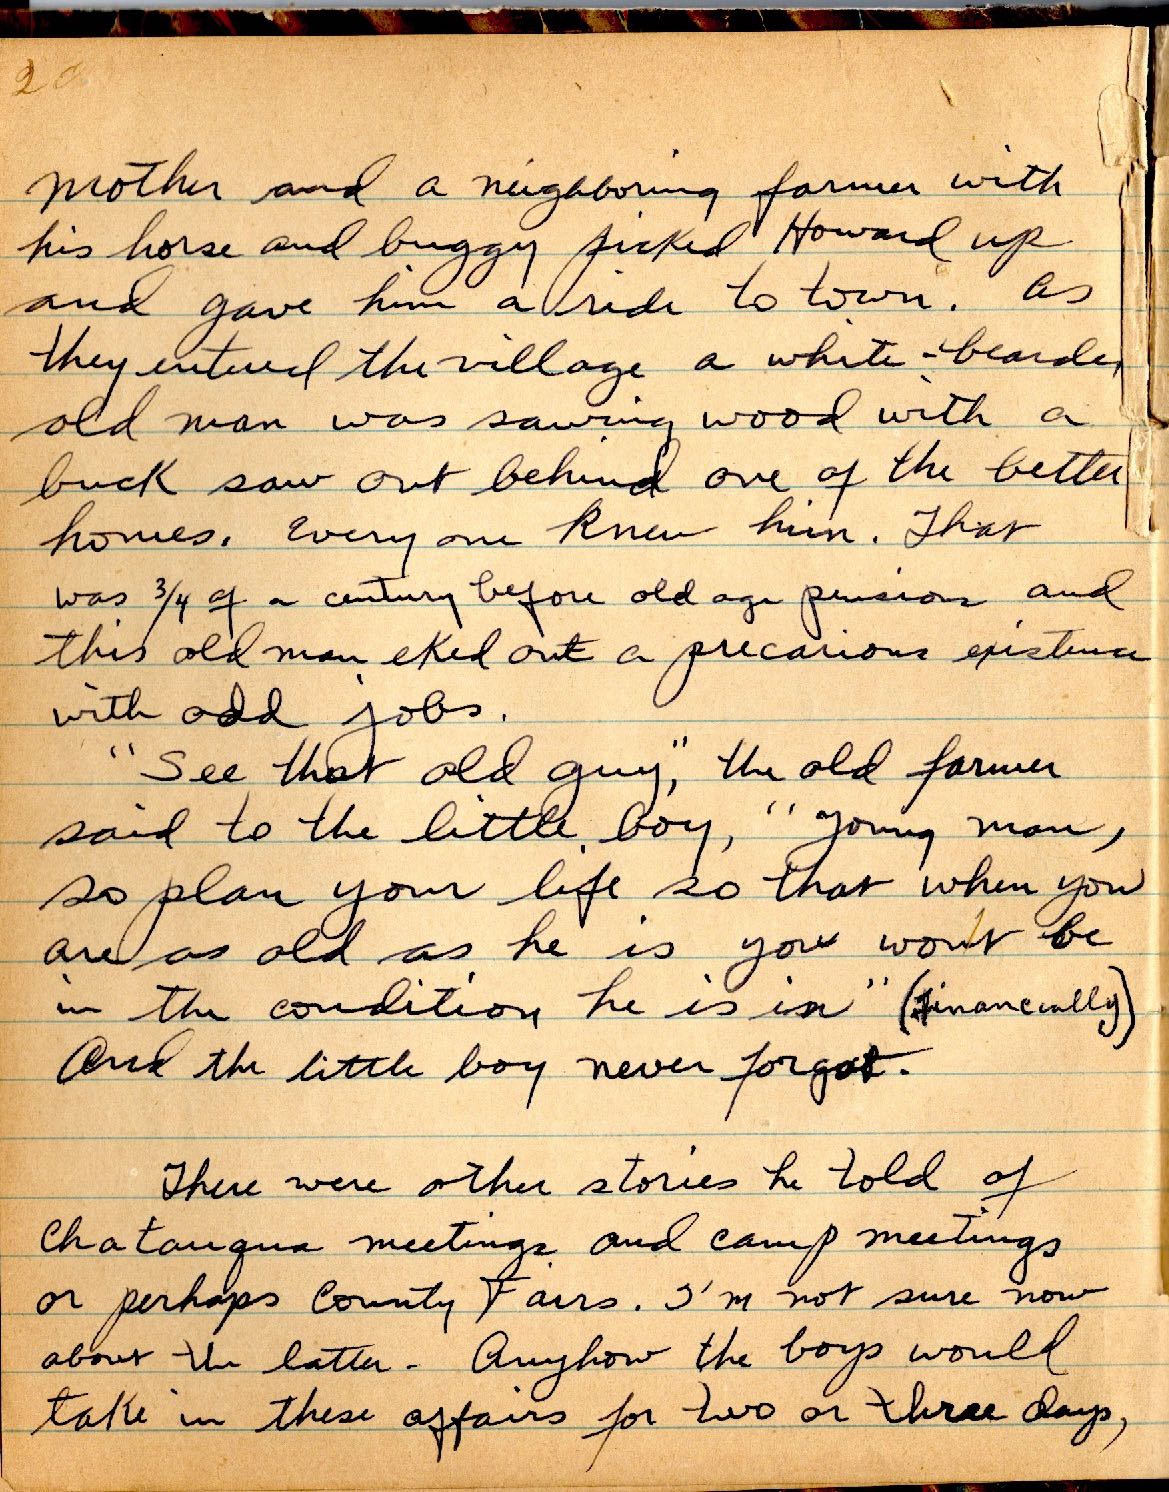 20
mother and a neighboring farmer with
his horse and buggy picked Howard up
and gave him a ride to town. As
they entered the village a white-bearded
old man was sawing wood with a
buck saw out behind one of the better
homes. Everyone knew him. That
was 3/4 of a century before old age pensions and
this old man eked out a precarious existence
with odd jobs.
"See that old guy," the old farmer
said to the little boy, "Young man,
so plan your life so that when you
are as old as he is you won't be
in the condition he is in" (financially)
And the little boy never forgot.
There were other stories he told of
Chatauqua meetings and camp meetings
or perhaps County Fairs. I'm not sure now
about the latter. Anyhow the boys would
take in these affairs for two or three days,